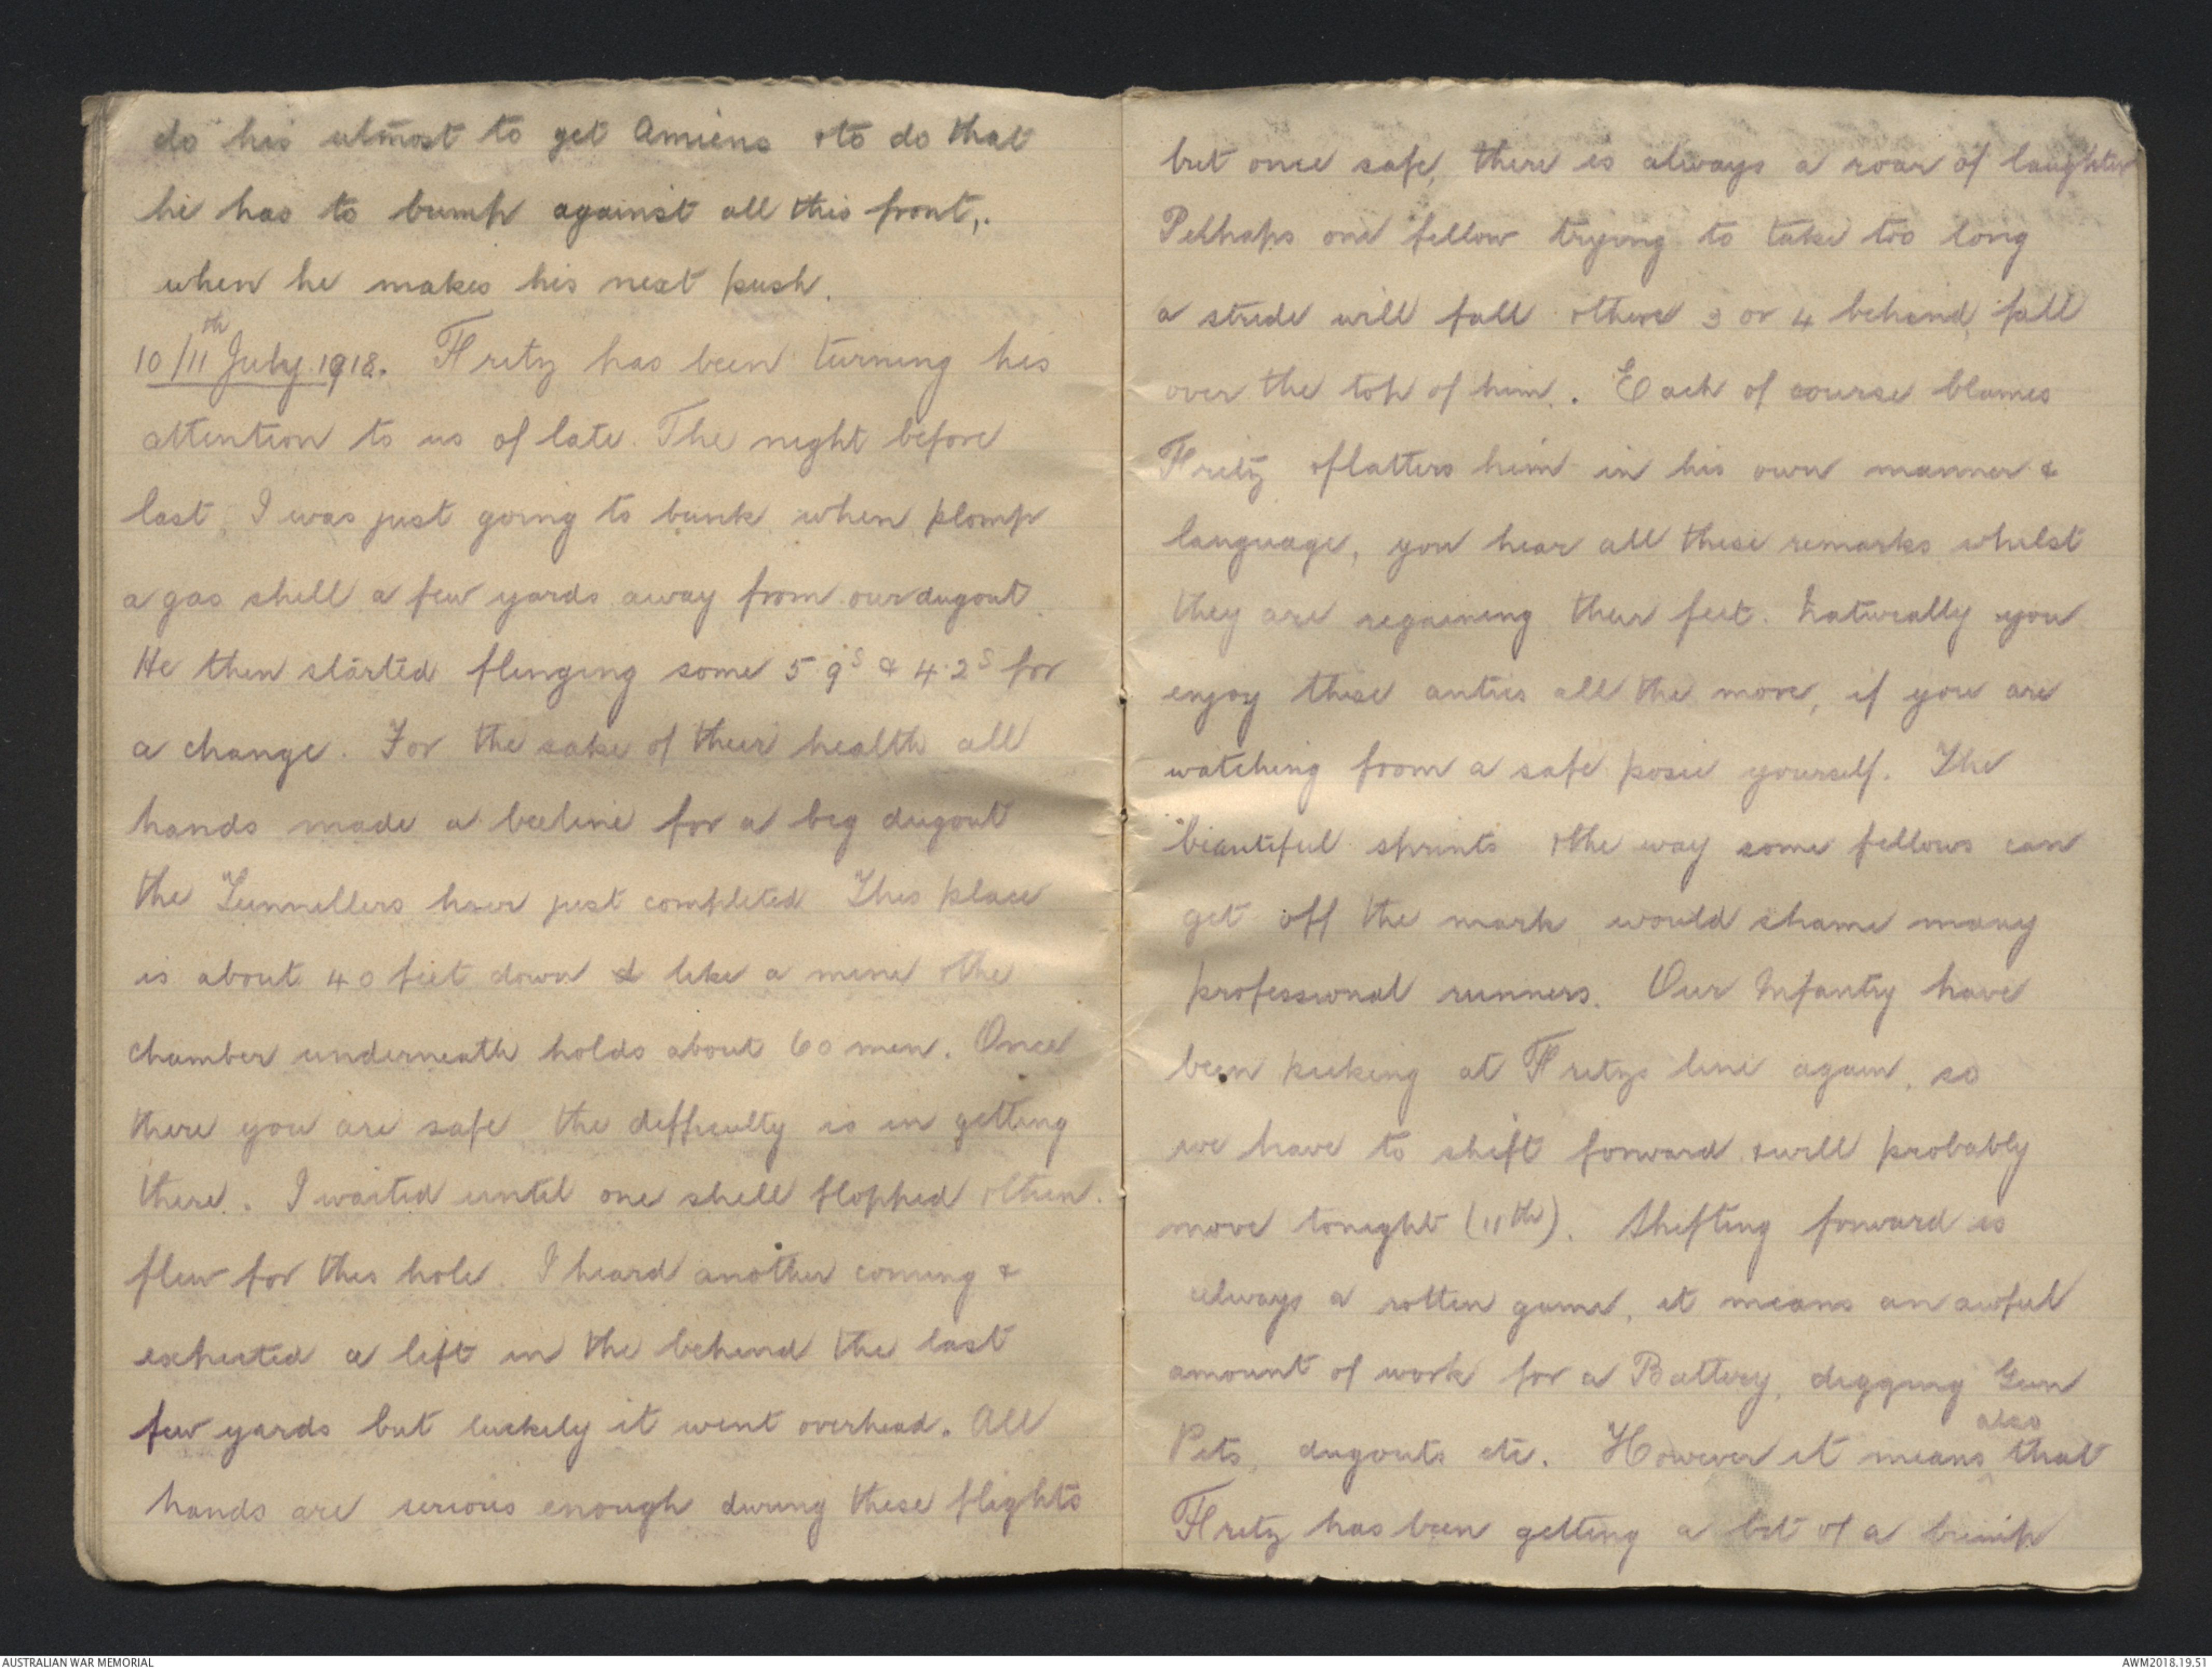 do his utmost to get Amiens & to do that
he has to bump against all this front,.
when he makes his next push.
10/11th July 1918. Fritz has been turning his
attention to us of late. The night before
last, I was just going to bunk when plomp
a gas shell a few yards away from our dugout.
He then started flinging some 5.9s & 4.2s for
a change. For the sake of their health all
hands made a beeline for a big dugout
the Tunnellers have just completed This place
is about 40 feet down & like a mine & the
chamber underneath holds about 60 men. Once
there you are safe the difficulty is in getting
there. I waited until one shell flopped & then.
flew for this hole. I heard another coming &
expected a lift in the behind the last
few yards but luckily it went overhead. All
hands are serious enough during these flights
but once safe, there is always a roar of laughter
Perhaps one fellow trying to take too long
a stride will fall & there 3 or 4 behind, fall
over the top of him. Each of course blames
Fritz & flatters him in his own manner &
language, you hear all these remarks whilst
they are regaining their feet. Naturally you
enjoy these antics all the more, if you are
watching from a safe posie yourself. The
beautiful sprints & the way some fellows can
get off the mark would shame many
professional runners. Our Infantry have
been picking at Fritzs line again, so
we have to shift forward & will probably
move tonight (11th). Shifting forward is
always a rotten game, it means an awful
amount of work for a Battery, digging Gun
Pits, dugouts etc. However it means also that
Fritz has been getting a bit of a bump
AUSTRALIAN WAR MEMORIAL
AWM2018.19.51